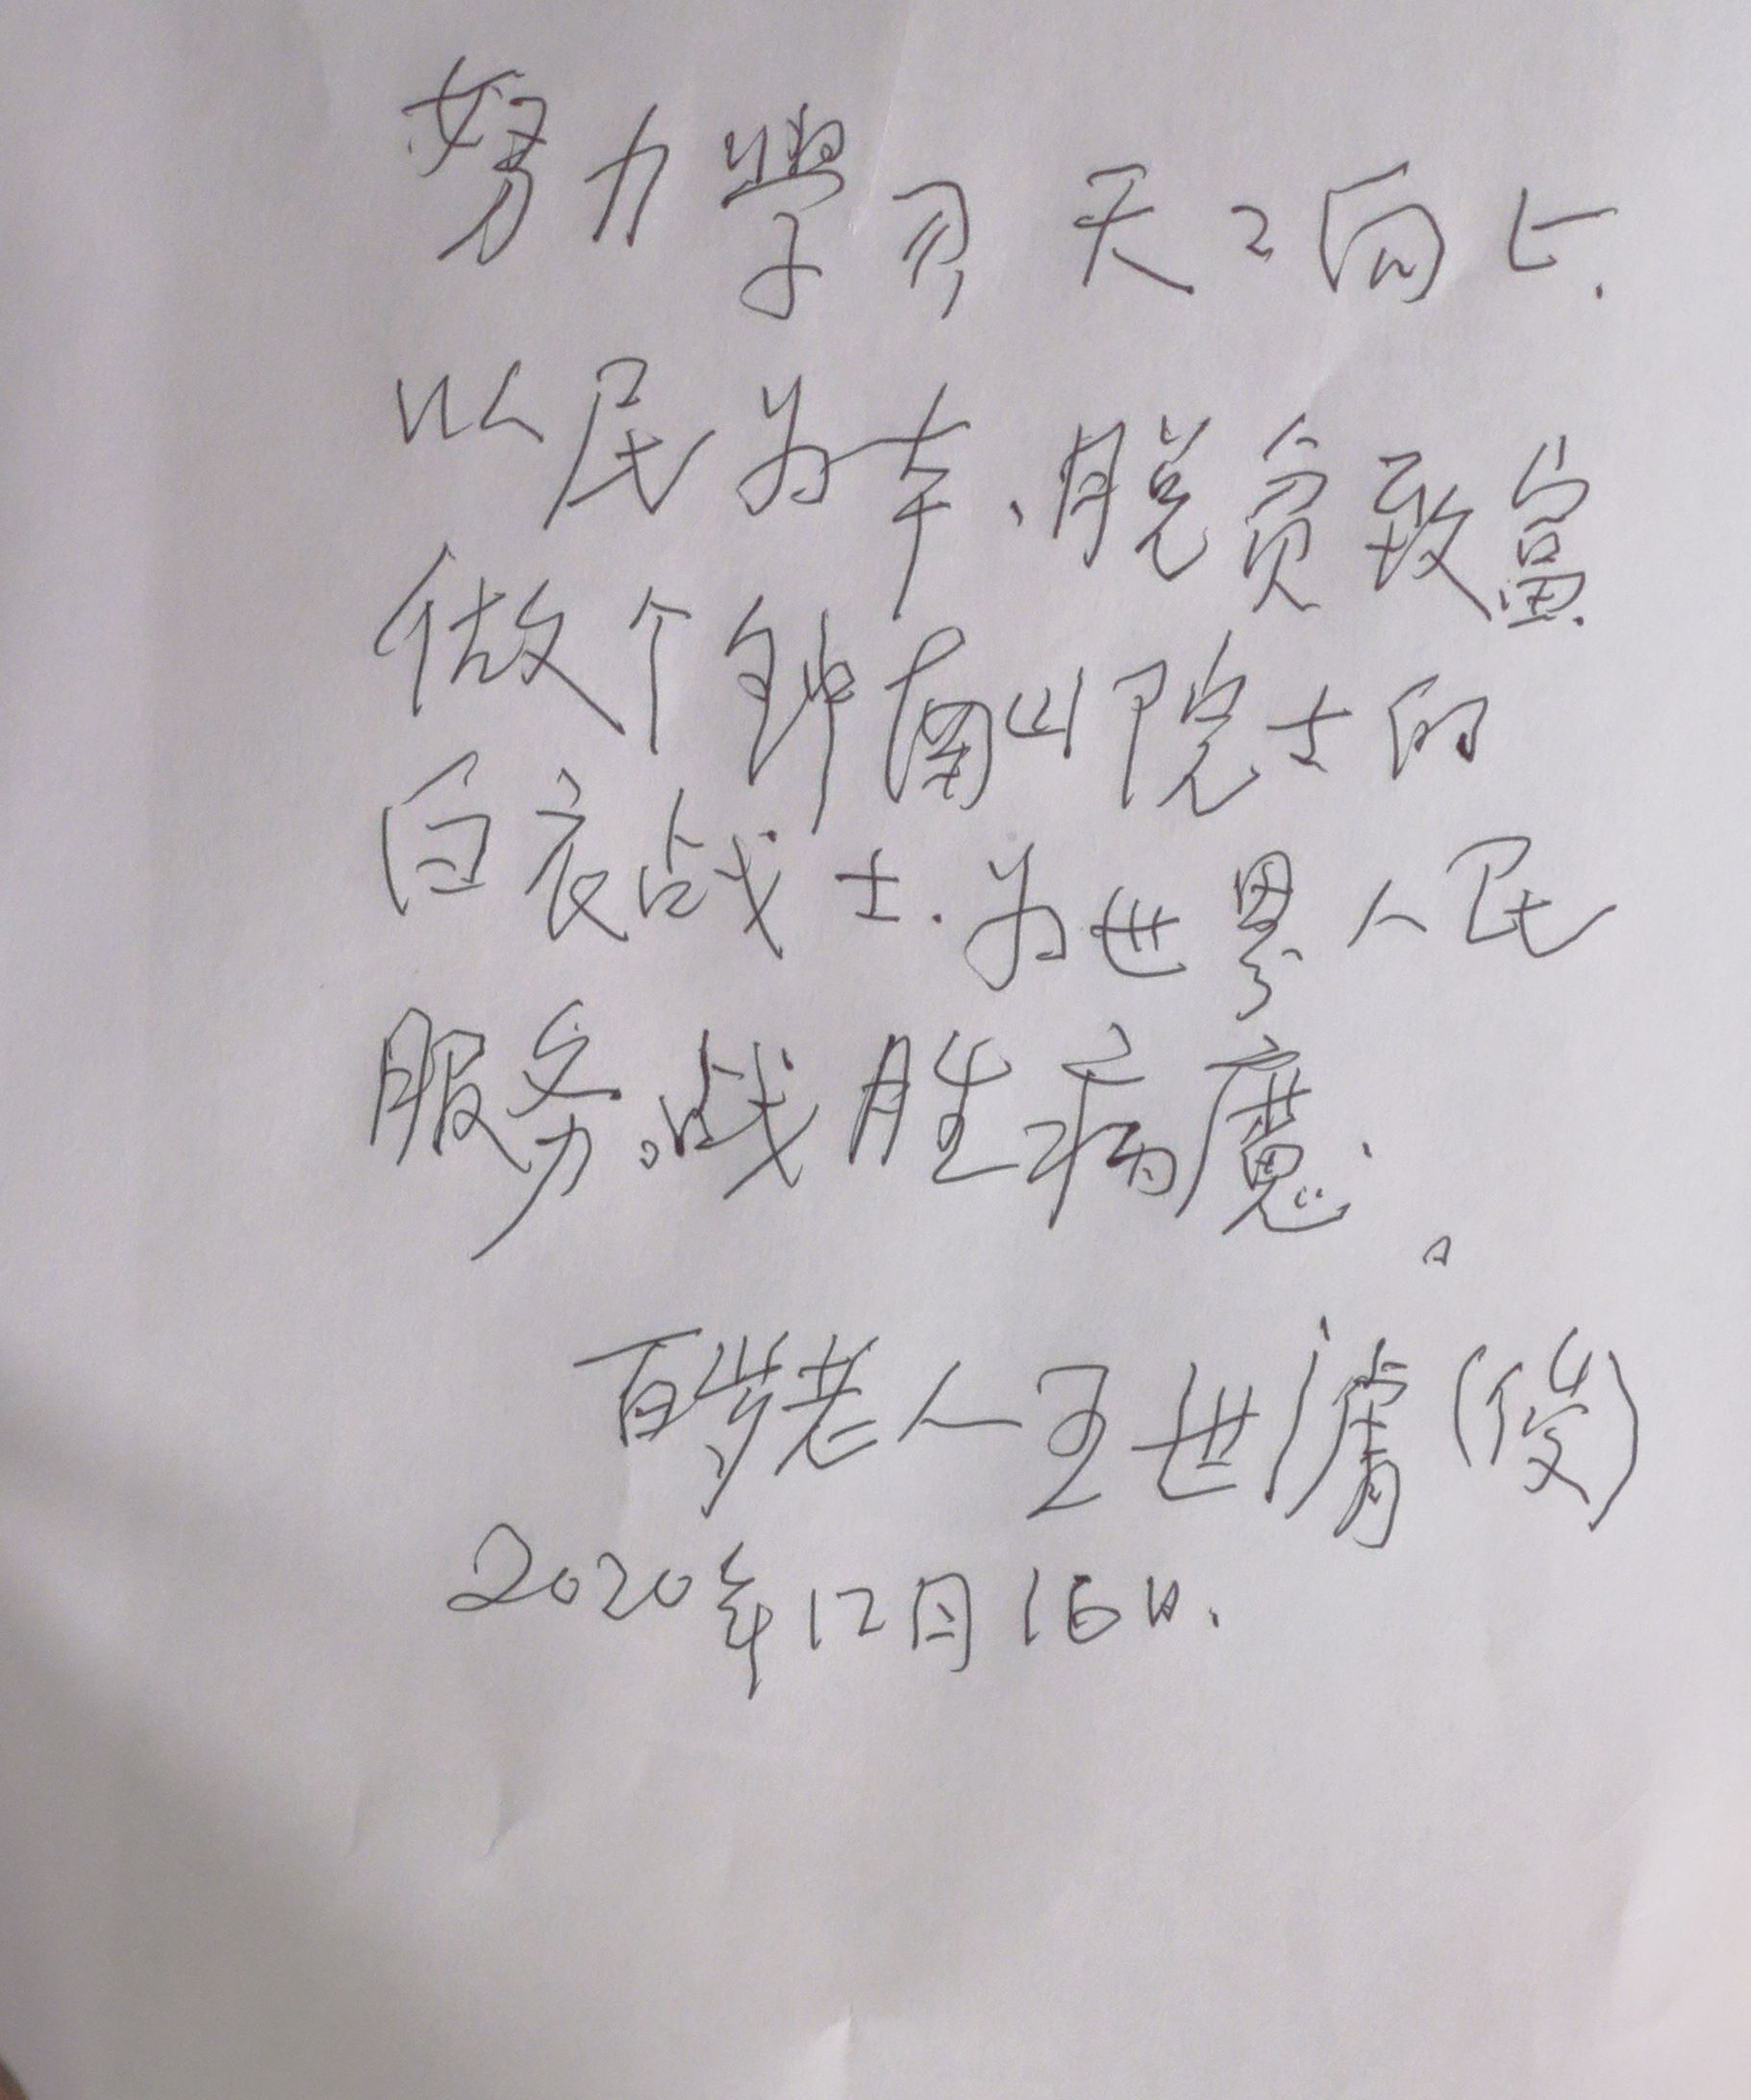 努力學习天々向上.
以民为本、脱贫致富
做个钟南山院士的
白衣战士.为世界人民
服务。战胜病魔.。
百岁老人王世(俊)
2020年12月16日.